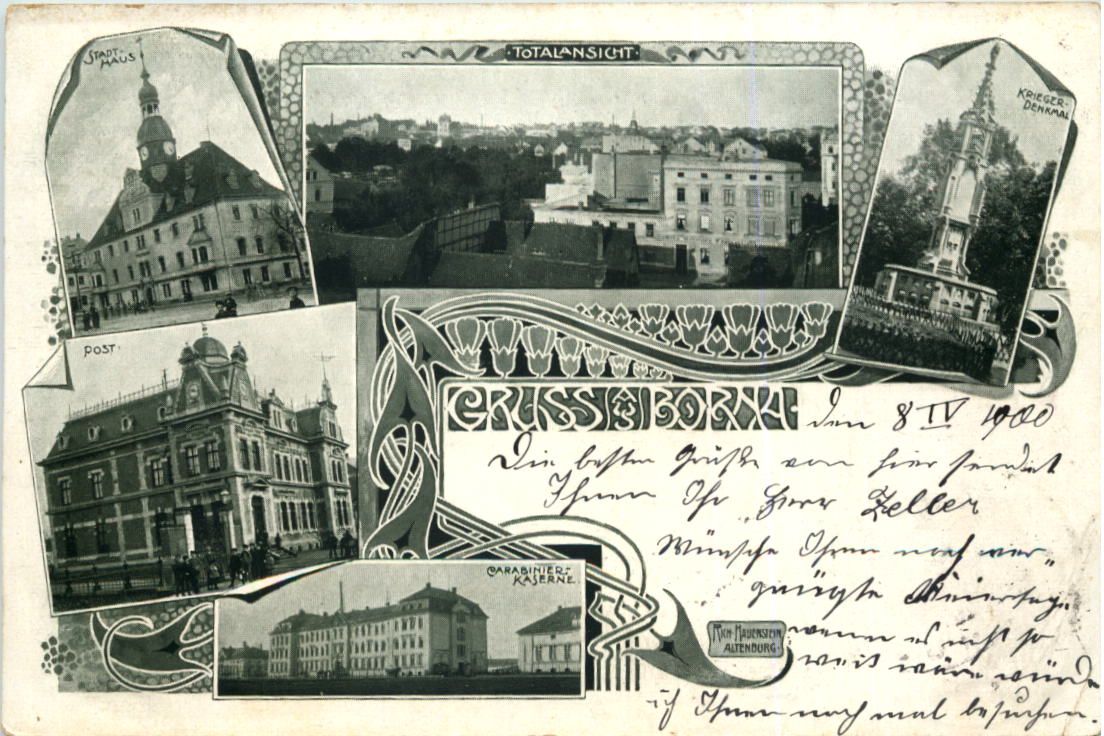 STADT-
HAUS
TOTALANSICHT
KRIEGER-
DENKMAL
POST.
GRUSS A BORNA.
den 8 IV 1900
Die besten Grüße von hier sendet
Ihnen Ihr Herr Zeller
Wünsche Ihnen noch ver-
gnügte
wenn es nicht so
weit wäre würde
ich Ihnen noch mal besuchen.
CARABINIER-
KASERNE.
RICH. HAUENSTEIN,
ALTENBURG.